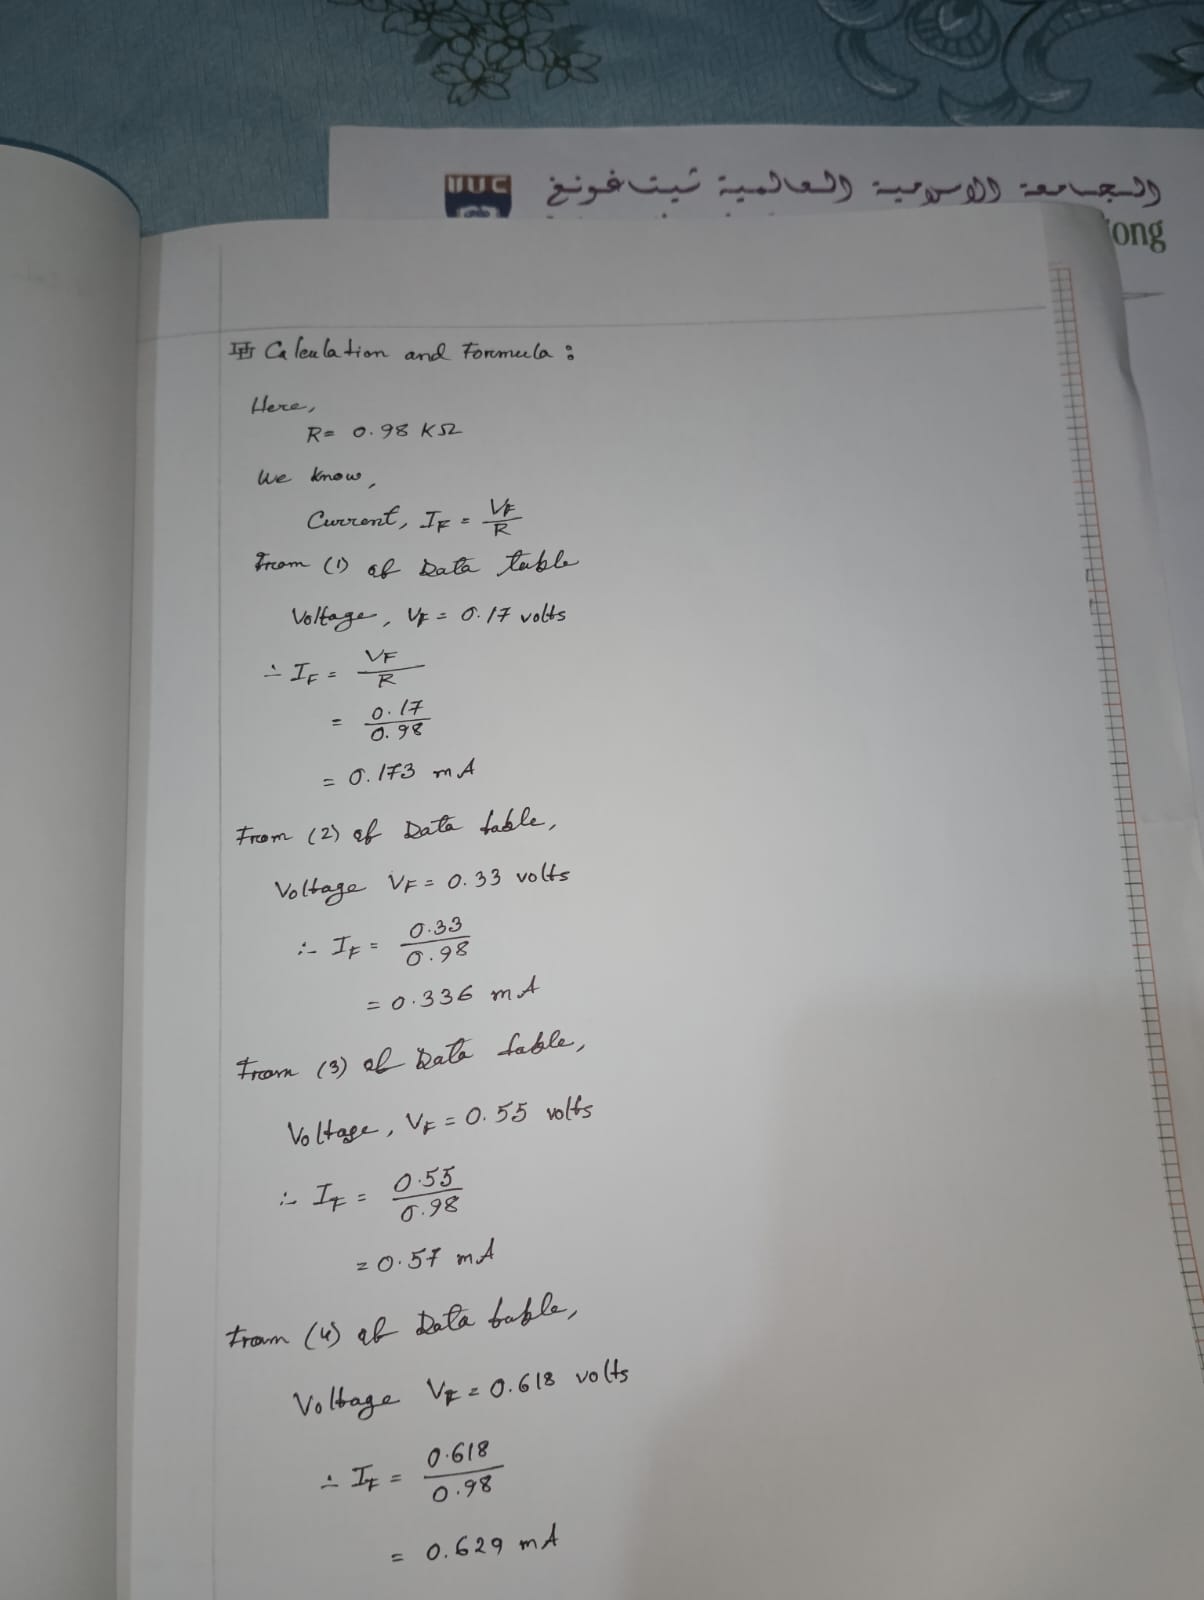 IIUC
الجامعة الاسلامية العالمية شيتاغونغ
ong
Calculation and Formula :
Here,
R = 0.98 KΩ
We know,
Current, IF = VF / R
From (1) of Data table
Voltage, VF = 0.17 volts
∴ IF = VF / R
= 0.17 / 0.98
= 0.173 mA
From (2) of Data table,
Voltage VF = 0.33 volts
∴ IF = 0.33 / 0.98
= 0.336 mA
From (3) of Data table,
Voltage, VF = 0.55 volts
∴ IF = 0.55 / 0.98
= 0.57 mA
From (4) of Data table,
Voltage VF = 0.618 volts
∴ IF = 0.618 / 0.98
= 0.629 mA